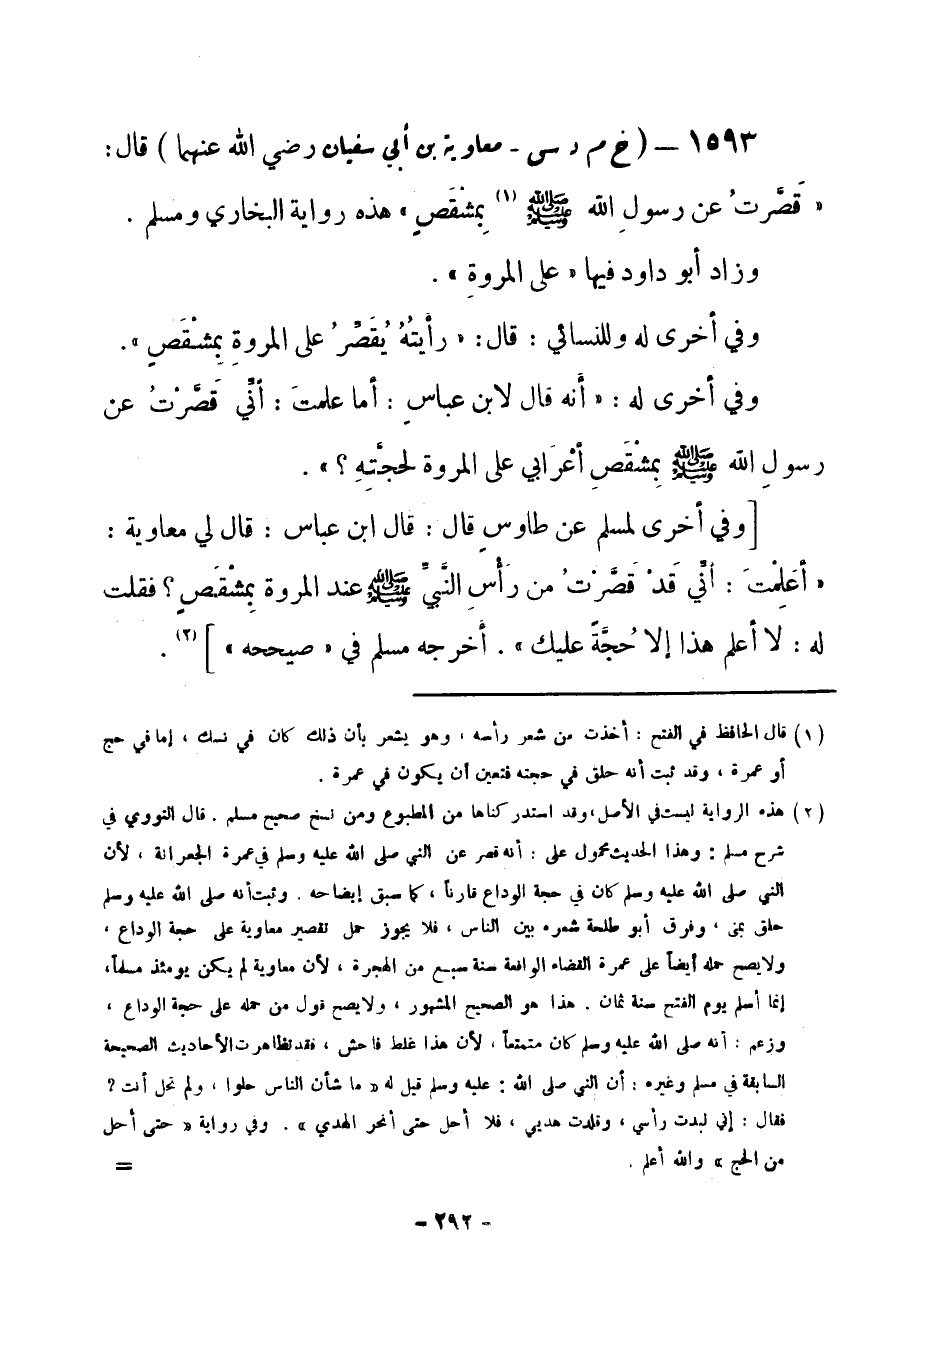 ١٥٩٣ — ( خ م د س - معاوية بن أبي سفيان رضي الله عنهما ) قال :
« قَصَّرتُ عن رسولِ الله ﷺ (١) بِمشْقَصٍ » هذه رواية البخاري ومسلم .
وزاد أبو داود فيها « على المروةِ » .
وفي أخرى له وللنسائي : قال : « رأيتُهُ يُقَصِّرُ على المروةِ بِمشْقَصٍ » .
وفي أخرى له : « أنه قال لابن عباسٍ : أما علمتَ : أنِّي قَصَّرْتُ عن
رسولِ الله ﷺ بِمشْقَصِ أعْرَابي على المروة لحجتَّهِ ؟ » .
[ وفي أخرى لمسلم عن طاوسٍ قال : قال ابن عباس : قال لي معاوية :
« أعَلِمْتَ : أنِّي قَدْ قَصَّرْتُ من رَأْسِ النَّبيِّ ﷺ عند المروة بِمشْقَصٍ ؟ فقلت
له : لا أعلم هذا إلا حُجَّةً عليك » . أخرجه مسلم في « صيححه » ] (٢) .
(١) قال الحافظ في الفتح : أخذت من شعر رأسه ، وهو يشعر بأن ذلك كان في نسك ، إما في حج
أو عمرة ، وقد ثبت أنه حلق في حجته فتعين أن يكون في عمرة .
(٢) هذه الرواية ليست في الأصل ، وقد استدركناها من المطبوع ومن نسخ صحيح مسلم . قال النووي في
شرح مسلم : وهذا الحديث محمول على : أنه قصر عن النبي صلى الله عليه وسلم في عمرة الجعرانة ، لأن
النبي صلى الله عليه وسلم كان في حجة الوداع قارناً ، كما سبق إيضاحه . وثبت أنه صلى الله عليه وسلم
حلق بمنى ، وفرق أبو طلحة شعره بين الناس ، فلا يجوز حمل تقصير معاوية على حجة الوداع ،
ولايصح حمله أيضاً على عمرة القضاء الواقعة سنة سبع من الهجرة ، لأن معاوية لم يكن يومئذ مسلماً ،
إنما أسلم يوم الفتح سنة ثمان . هذا هو الصحيح المشهور ، ولايصح قول من حمله على حجة الوداع ،
وزعم : أنه صلى الله عليه وسلم كان متمتعاً ، لأن هذا غلط فاحش ، فقد تظاهرت الأحاديث الصحيحة
السابقة في مسلم وغيره : أن النبي صلى الله : عليه وسلم قيل له « ما شأن الناس حلوا ، ولم تحل أنت ؟
فقال : إني لبدت رأسي ، وقلدت هديي ، فلا أحل حتى أنحر الهدي » . وفي رواية « حتى أحل
من الحج » والله أعلم .
=
- ٢٩٢ -